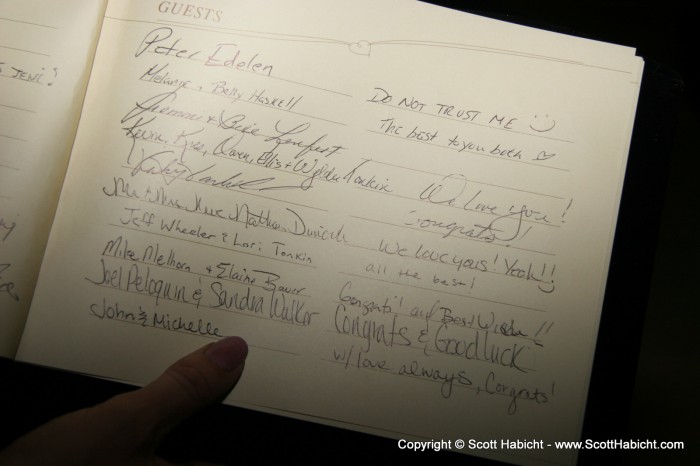 GUESTS
s JEWI!
Peter Edelen
DO NOT TRUST ME :)
Melanie & Billy Haskell
The best to you both ♡
Kevin, Kris, Owen, Ellis & Wylder Tonkin
We love you!
Congrats!
Mr & Mrs
Jeff Wheeler & Lori Tonkin
We love yous! Yeah!!
all the best!
Mike Melhorn & Elaine Bauer
Congrats! and Best Wishes!!
Joel Peloquin & Sandra Walker
Congrats & Good luck
John & Michelle
w/ love always, Congrats!
Copyright © Scott Habicht - www.ScottHabicht.com